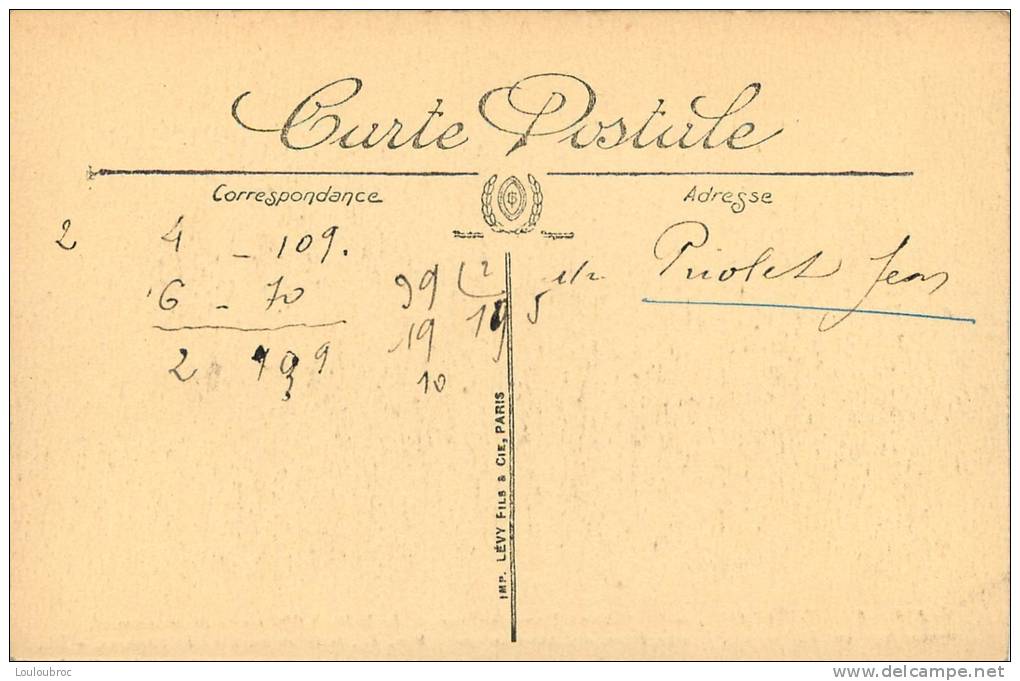 Carte Postale
Correspondance
Adresse
2 4 - 109.
6 - 70
2 39
39 2
19 19 5
10
Priolet Jean
IMP. LÉVY FILS & CIE, PARIS
Louloubroc
delcampe.net